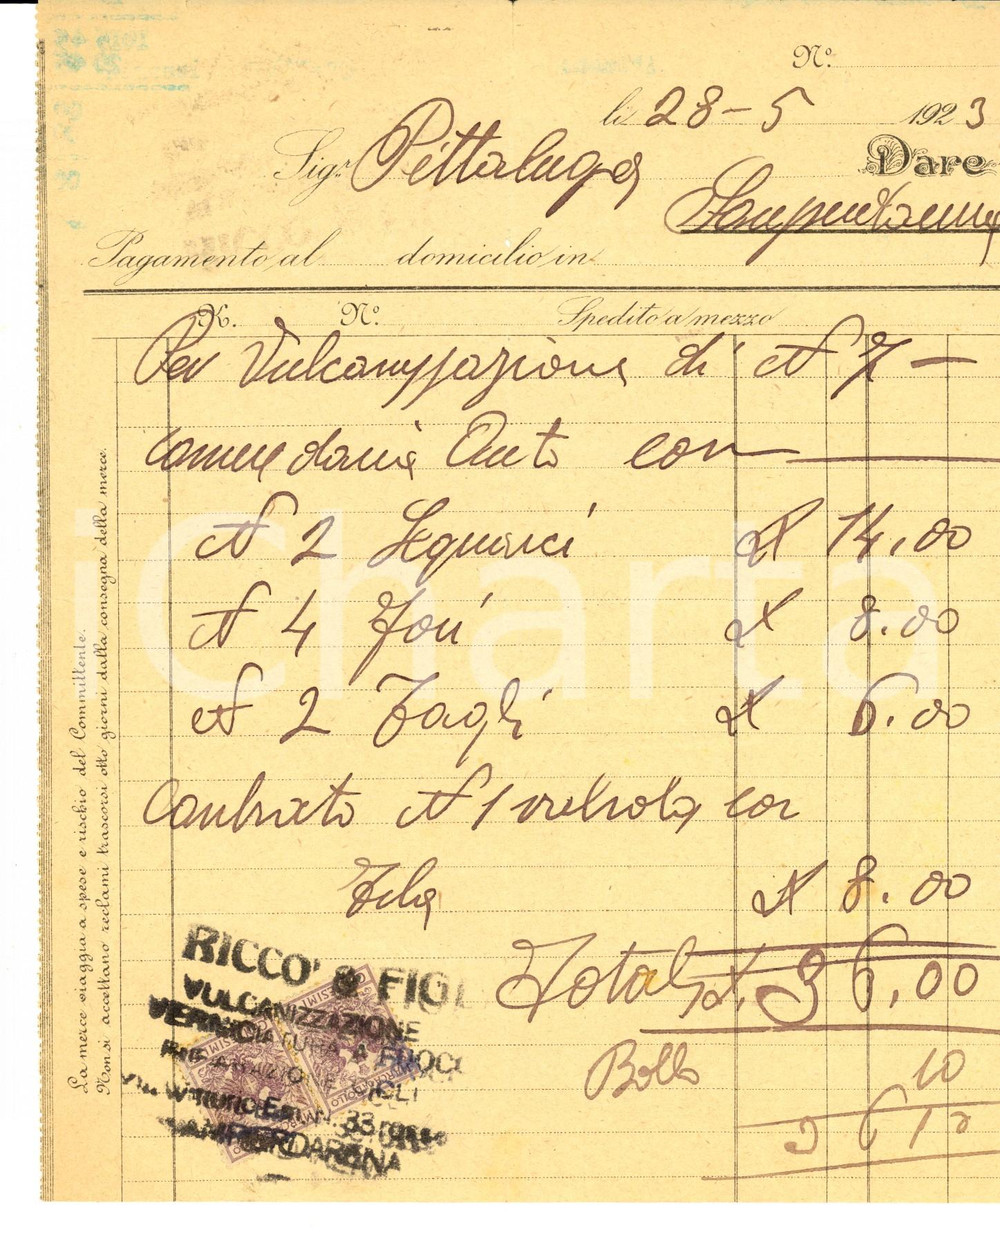 Nº
li 28-5 1923
Sigr. Pittaluga Dare
Sampierdarena
Pagamento al domicilio in
K. Nº Spedito a mezzo
Per Vulcanizzazione di N 7 —
camere d'aria Auto con
N 2 Squarci £ 14.00
N 4 Fori £ 8.00
N 2 Tagli £ 6.00
N 1 con
Tela £ 8.00
Totale £. 36,00
Bollo 10
36 10
La merce viaggia a spese e rischio del Committente.
Non si accettano reclami trascorsi otto giorni dalla consegna della merce.
RICCO' & FIGL
VULCANIZZAZIONE
VERNICIATURA A FUOCO
RIPARAZIONE CICLI
Via Vittorio Em. N. 33
SAMPIERDARENA
iCharta